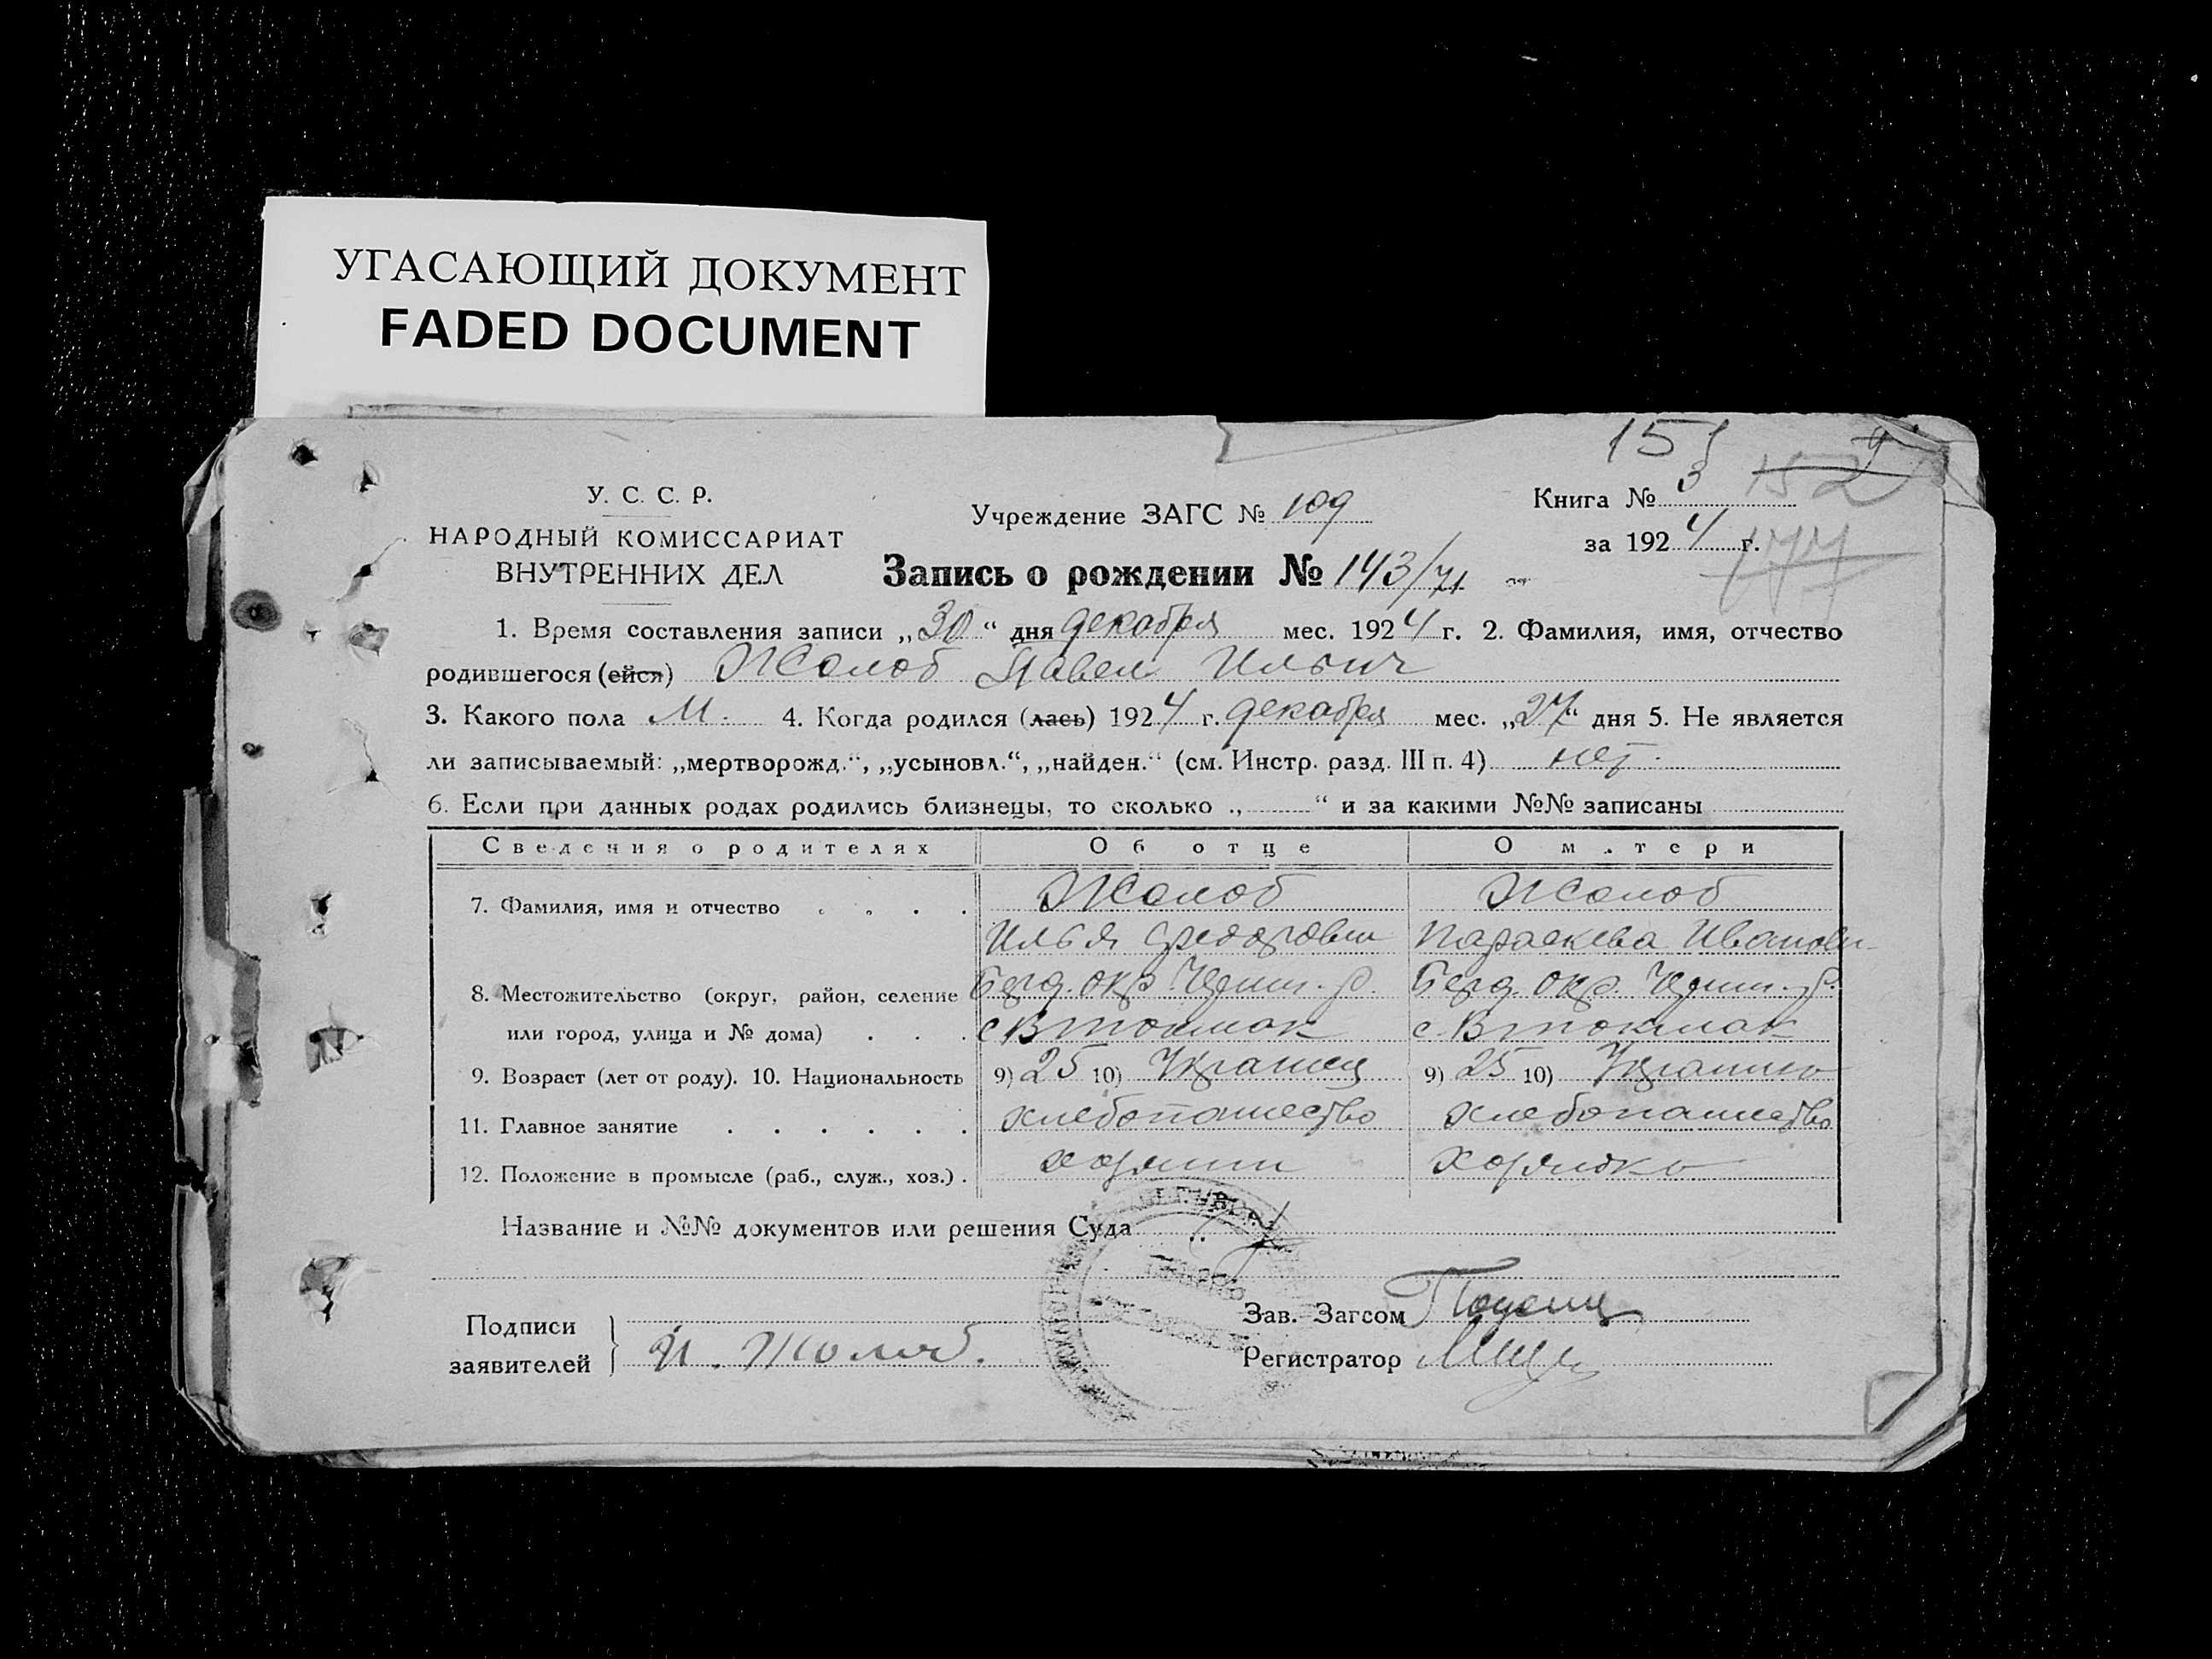 УГАСАЮЩИЙ ДОКУМЕНТ
FADED DOCUMENT
151
152
У. С. С. Р.
НАРОДНЫЙ КОМИССАРИАТ
ВНУТРЕННИХ ДЕЛ
Учреждение ЗАГС № 109
Книга № 3
за 1924 г.
177
Запись о рождении № 143/71
1. Время составления записи „30“ дня декабря мес. 1924 г. 2. Фамилия, имя, отчество
родившегося (ейся) Жолоб Павел Ильич
3. Какого пола М. 4. Когда родился (лась) 1924 г. декабря мес. „27“ дня 5. Не является
ли записываемый: „мертворожд.“, „усыновл.“, „найден.“ (см. Инстр. разд. III п. 4) нет.
6. Если при данных родах родились близнецы, то сколько „ “ и за какими №№ записаны
Сведения о родителях Об отце О матери
7. Фамилия, имя и отчество . . . . Жолоб Жолоб
Илья Федорович Параскева Иванов-
8. Местожительство (округ, район, селение Берд. окр. р. Берд. окр. р.
или город, улица и № дома) . . . с. В токмак с. В токмак
9. Возраст (лет от роду). 10. Национальность 9) 25 10) Украинец 9) 25 10)
11. Главное занятие . . . . . . хлебопашество хлебопашество
12. Положение в промысле (раб., служ., хоз.) .
Название и №№ документов или решения Суда
Подписи
заявителей И. Жолоб.
Зав. Загсом
Регистратор